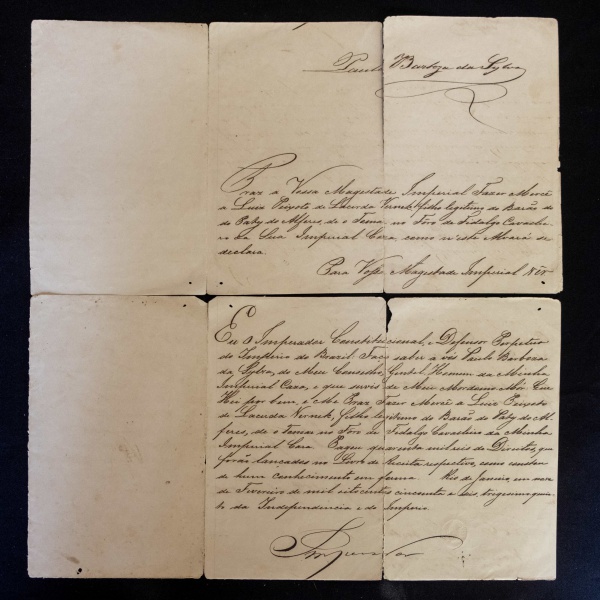 Paulo Barboza da Sylva
Praz a Vossa Magestade Imperial Fazer Mercê
a Luiz Peixoto de Lacerda Vernek, filho legitimo do Barão de
do Paty do Alferes, de o Tomar no Foro de Fidalgo Cavallei-
ro da Sua Imperial Caza, como n'este Alvará se
declara.
Para Vossa Magestade Imperial Vêr
Eu O Imperador Constitucional, e Defensor Perpetuo
do Imperio do Brazil Faço saber a vós Paulo Barboza
da Sylva, do Meu Conselho, Gentil Homem da Minha
Imperial Caza, e que servis de Meu Mordomo Mór: Que
Hei por bem, e Me Praz Fazer Mercê a Luiz Peixoto
de Lacerda Vernek, filho legitimo do Barão do Paty do Al-
feres, de o Tomar no Foro de Fidalgo Cavalleiro da Minha
Imperial Caza. Pagou quarenta mil reis de Direitos, que
forão lancados no Livro de Receita respectivo, como constou
de hum conhecimento em forma. Rio de Janeiro, em nove
de Fevereiro de mil oitocentos cincoenta e seis, trigesimo quin-
to da Independencia e do Imperio.
Imperador